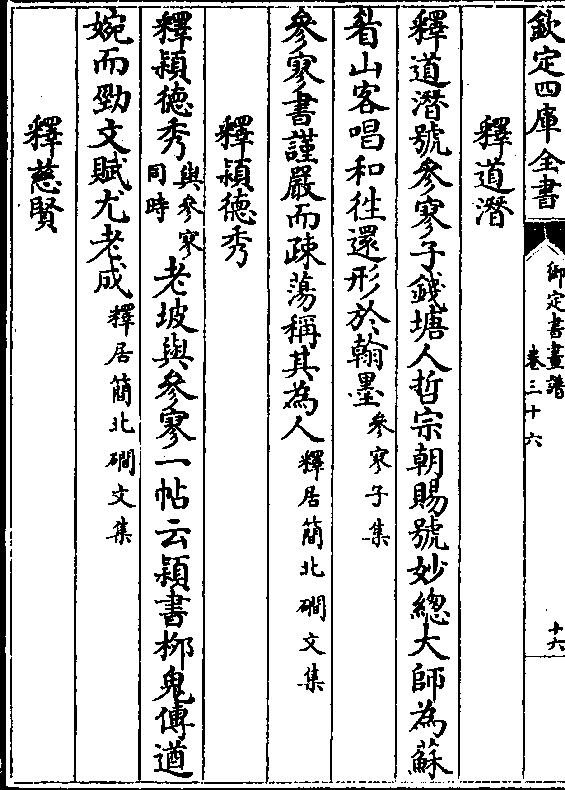 欽定四庫全書
御定書畫譜
卷三十六
十六
釋道潛
釋道潛號參寥子錢塘人哲宗朝賜號妙總大師為蘇
眉山客唱和往還形於翰墨參寥子集
參寥書謹嚴而疎蕩稱其為人釋居簡北磵文集
釋穎德秀
釋穎德秀與參寥同時老坡與參寥一帖云穎書栁鬼傳遒
婉而勁文賦尤老成釋居簡北磵文集
釋慈賢